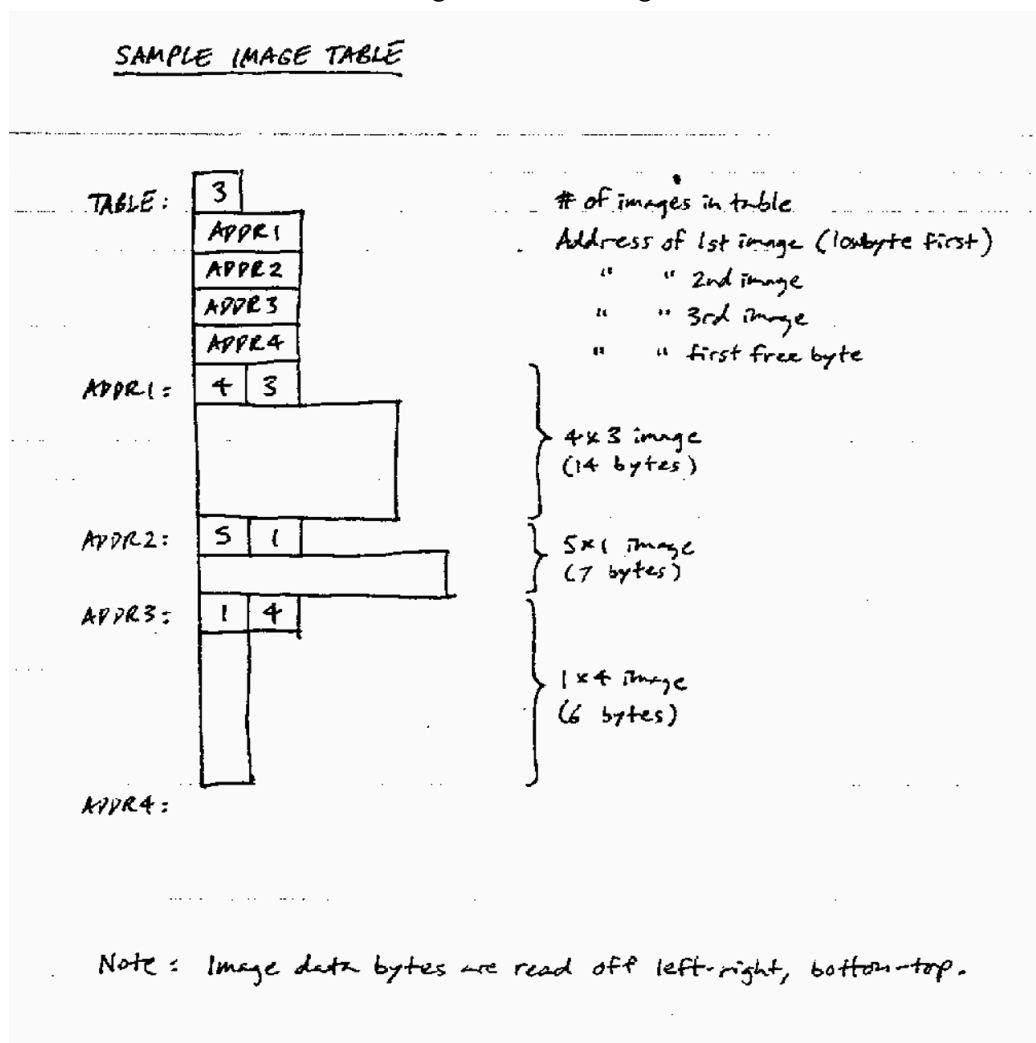 SAMPLE IMAGE TABLE
TABLE: 3 # of images in table
ADDR1 Address of 1st image (lowbyte first)
ADDR2 " " 2nd image
ADDR3 " " 3rd image
ADDR4 " " first free byte
ADDR1: 4 3
4x3 image
(14 bytes)
ADDR2: 5 1
5x1 image
(7 bytes)
ADDR3: 1 4
1x4 image
(6 bytes)
ADDR4:
Note: Image data bytes are read off left-right, bottom-top.